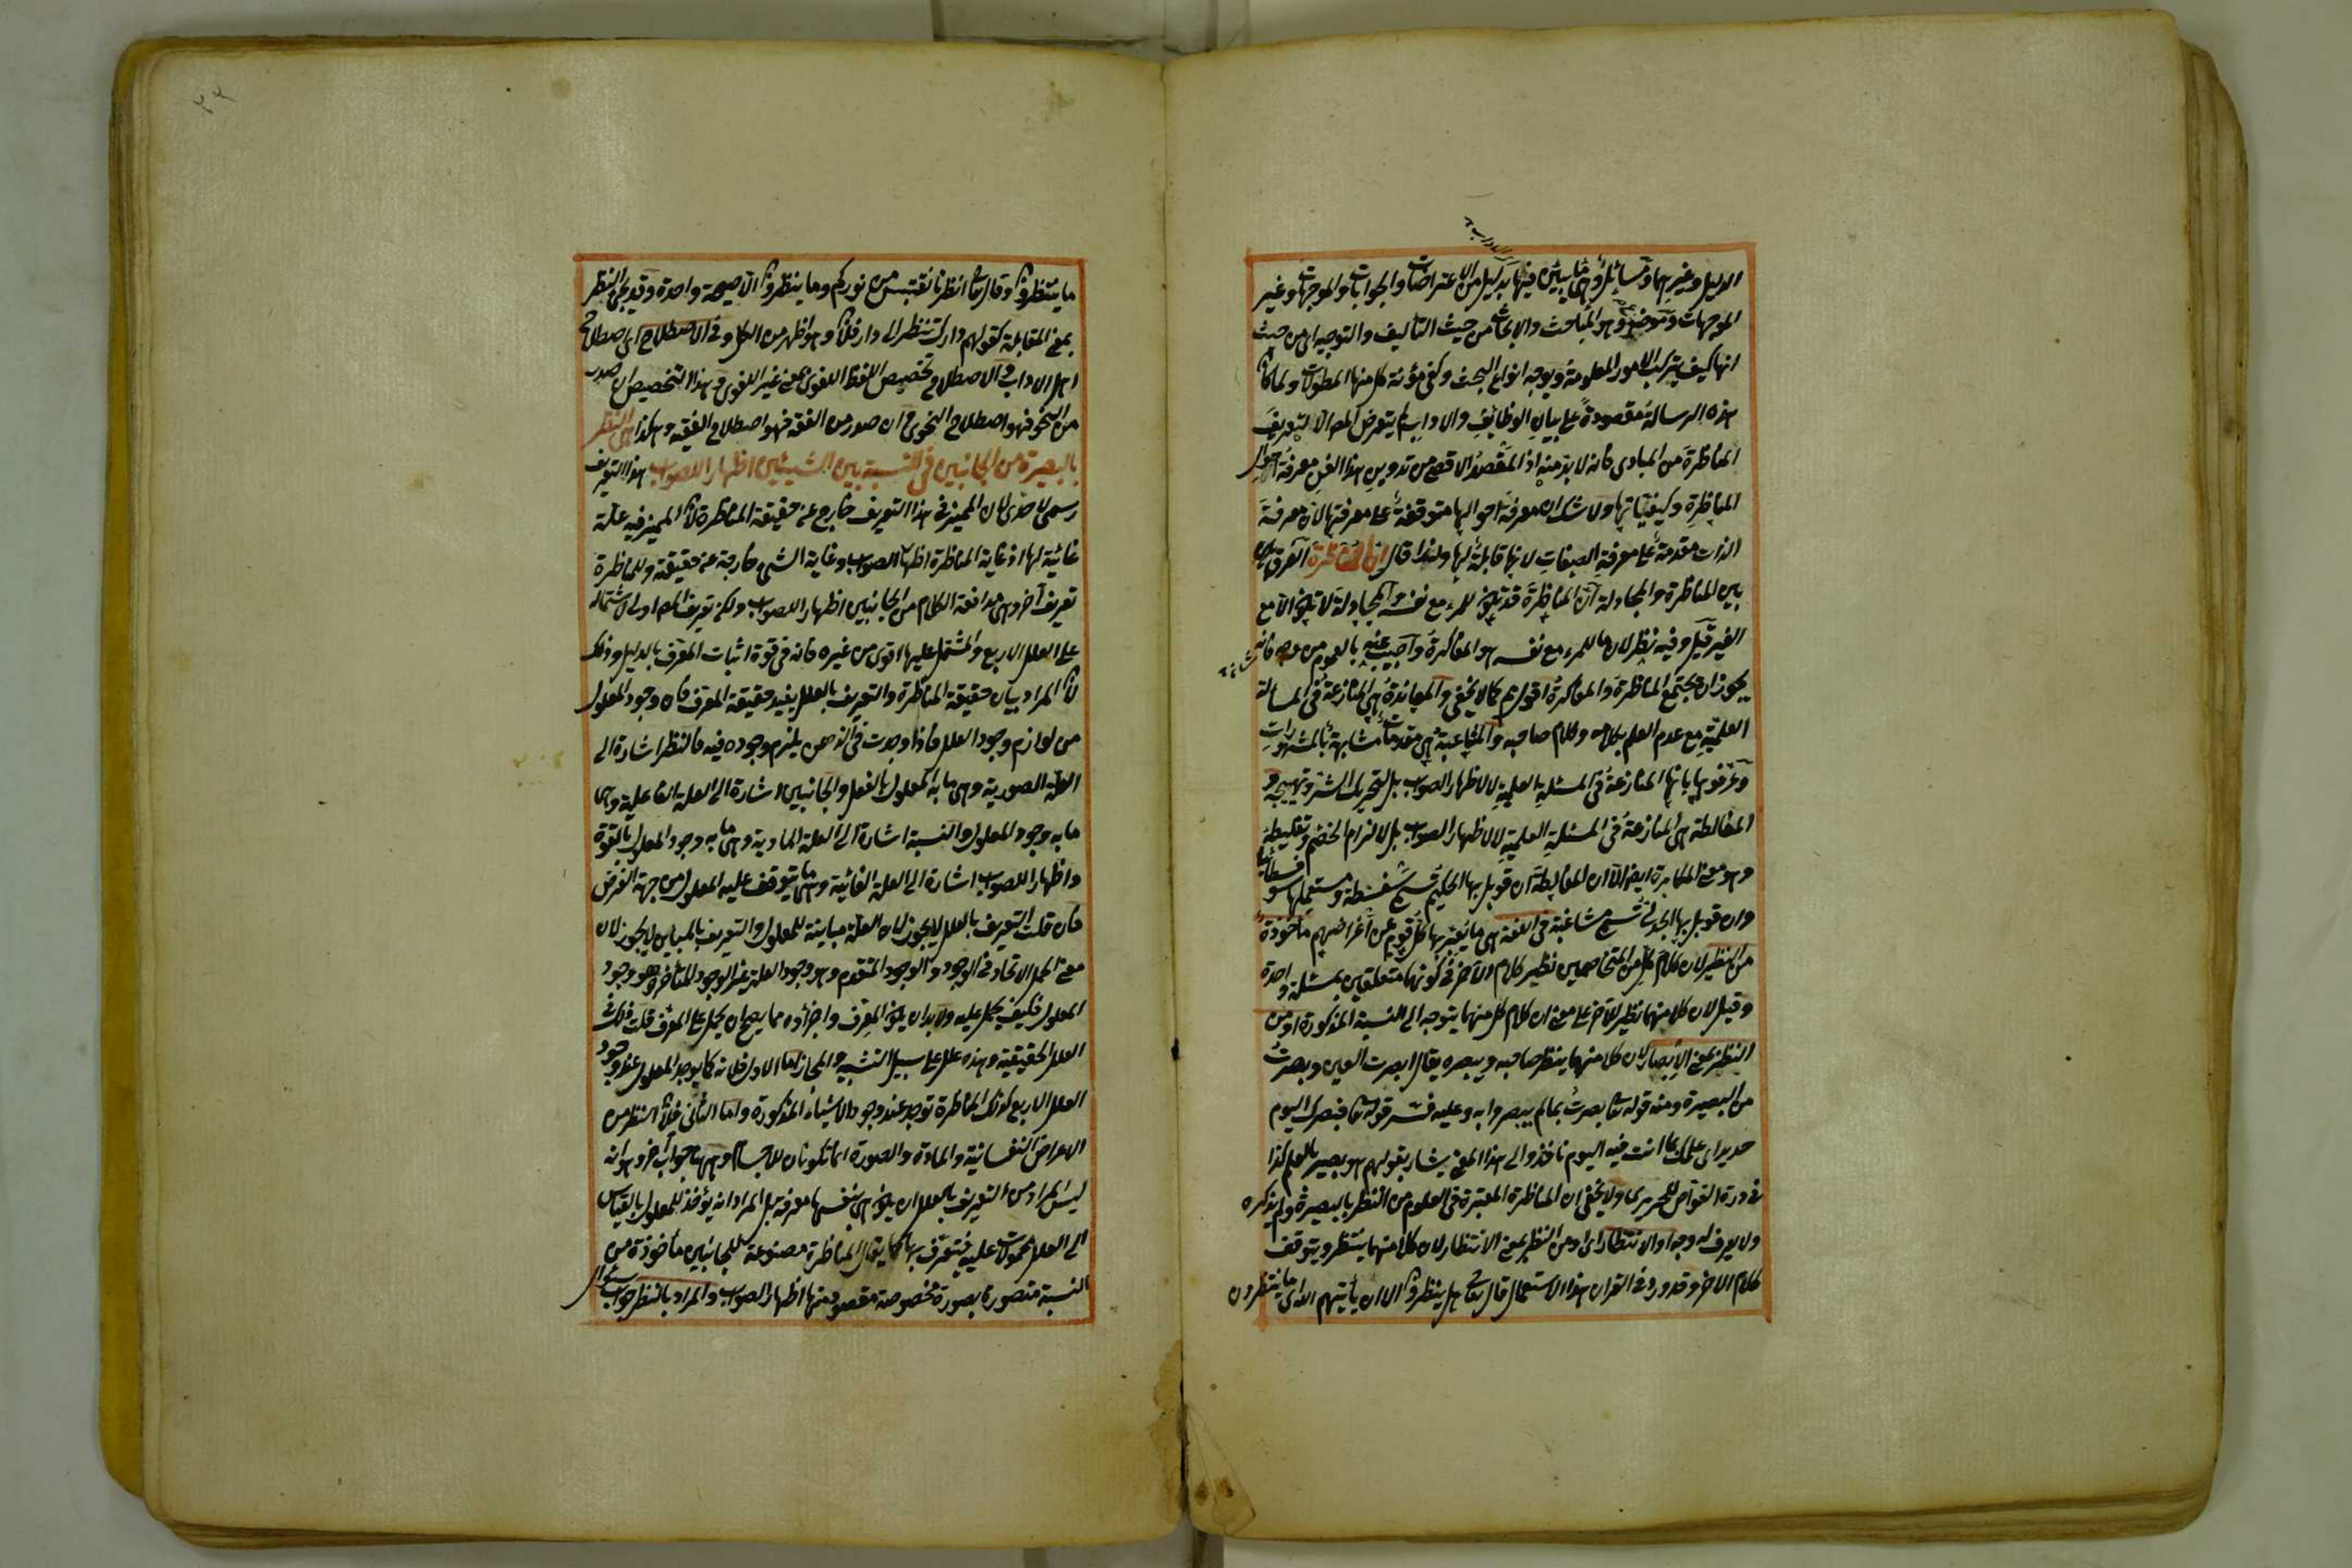 الدليل وغيرهما ومسائله وهي ما يبين فيها بدليل من الاعتراضات والجوابات والموجهات وغير
الموجهات وموضوعه وهو المباحث والابحاث من حيث التأليف والتوجيه اى من حيث
انها كيف يتركب الامور المعلومة ويوجه انواع البحث وكفى مؤنة كل منها المطولات ولما كان
هذه الرسالة مقصودة على بيان الوظائف والاداب لم يتعرض المص الا لتعريف
المناظرة من المبادى فانه لا بد منه اذ المقصد الاقصى من تدوين هذا الفن معرفة احوال
المناظرة وكيفياتها ولا شك ان معرفة احوالها متوقفة على معرفتها لان معرفة
الذات مقدمة على معرفة الصفات لانها قابلة لها ولهذا قال المناظرة الفرق
بين المناظرة والمجادلة ان المناظرة قد تكون للمرء مع نفسه والمجادلة لا تكون الا مع
الغير قيل وفيه نظر لان ما للمرء مع نفسه هو المفاكرة واجيب عنه بالعموم من وجه فانه
يجوز ان يجتمع المناظرة والمفاكرة كما لا يخفى والمعاندة هى المنازعة فى المسألة
العلمية مع عدم العلم بكلامه وكلام صاحبه والمشاغبة هى مقدمات مشابهة بالمشهورات
وعرفوها بانها المنازعة فى المسئلة العلمية لا لاظهار الصواب بل لتحريك الشر وتهييجه و
المغالطة هى المنازعة فى المسئلة العلمية لا لاظهار الصواب بل لالزام الخصم وتغليطه
وهو معنى المكابرة ايضا الا ان المغالطة ان قوبل بها الحكيم سمى سفسطة ومستعملها سوفسطائيا
وان قوبل بها الجدلى سمى مشاغبة فى اللغة هى ما يعبر بها كل قوم عن اغراضهم مأخوذة
من النظير لان كلام كل من المتخاصمين نظير كلام الاخر فى كونهما متعلقين بمسئلة واحدة
وقيل لان كلا منهما نظير للآخر على معنى ان كلام كل منهما يتوجه الى النسبة المذكورة او من
النظر بمعنى الابصار لان كلا منهما ينظر صاحبه ويبصره يقال ابصرت العين وبصرت
من البصيرة ومنه قوله تعا بصرت بما لم يبصروا به وعليه فسر قوله تعا فبصرك اليوم
حديد اى علمك بما انت فيه اليوم نافذ والى هذا المعنى يشار بقولهم هو بصير بالعلم كذا
فى درة الغواص للحريرى ولا يخفى ان المناظرة المعتبرة فى العلوم من النظر بالبصيرة ولم يذكره
ولا يعرف له وجه او الانتظار اى او من النظر بمعنى الانتظار لان كلا منهما ينتظر ويتوقف
كلام الاخر وقد ورد فى القران هذا الاستعمال قال تعالى هل ينظرون الا ان يأتيهم الله اى ما ينتظرون
٢٢
ما ينتظرون وقال تعا انظرنا نقتبس من نوركم وما ينظرون الا صيحة واحدة وقد يجئ النظر
بمعنى المقابلة كقولهم دارك تنظر الى دار فلان وهو اظهر من الكل وفى الاصطلاح اى اصطلاح
اهل الاداب والاصطلاح تخصيص اللفظ اللغوى بمعنى غير اللغوى وهذا التخصيص ان صدر
من النحو فهو اصطلاح النحوى وان صدر من الفقه فهو اصطلاح الفقيه وهكذا هى النظر
بالبصيرة من الجانبين فى النسبة بين الشيئين اظهارا للصواب هذا التعريف
رسمى لا حدى لان المميز فى هذا التعريف خارج عن حقيقة المناظرة لان المميز فيه علة
غائية لها اذ غاية المناظرة اظهار الصواب وغاية الشئ خارجة عن حقيقته وللمناظرة
تعريف آخر وهى مدافعة الكلام من الجانبين اظهارا للصواب ولكن تعريف المص اولى لاشتماله
على العلل الاربع والمشتمل عليها اقوى من غيره فانه فى قوة اثبات المعرف بالدليل وذلك
لان المراد بيان حقيقة المناظرة والتعريف بالعلل يفيد حقيقة المعرف فان وجود المعلول
من لوازم وجود العلل فاذا وجدت فى الذهن يلزم وجوده فيه فالنظر اشارة الى
العلة الصورية وهى ما به المعلول بالفعل والجانبين اشارة الى العلة الفاعلية وهى
ما به وجود المعلول والنسبة اشارة الى العلة المادية وهى ما به وجود المعلول بالقوة
واظهارا للصواب اشارة الى العلة الغائية وهى ما يتوقف عليه المعلول من جهة الغرض
فان قلت التعريف بالعلل لا يجوز لان العلة مباينة للمعلول والتعريف بالمباين لا يجوز لان
معنى الحمل الاتحاد فى الوجود والوجود المتقدم وهو وجود العلة غير الوجود المتأخر وهو وجود
المعلول فكيف يحمل عليه ولا بد ان يكون المعرف واجزاؤه مما يصح ان يحمل على المعرف قلت ذلك فى
العلل الحقيقية وهذه علل على سبيل التشبيه والمجاز اما الاول فلانه كما يوجد المعلول عند وجود
العلل الاربع كذلك المناظرة توجد عند وجود الاشياء المذكورة واما الثانى فلان النظر من
الاعراض النفسانية والمادة والصورة انما تكونان للاجسام وههنا جواب آخر وهو انه
ليس المراد من التعريف بالعلل ان يكون هى بنفسها معرفة بل المراد انه يؤخذ للمعلول بالقياس
الى العلل محمولات عليه فتعرف بها كما يقال المناظرة مصنوعة للجانبين مأخوذة من
النسبة متصورة بصورة مخصوصة مقصود منها اظهار الصواب والمراد بالنظر جواب